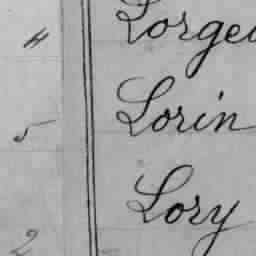 4 Lorge
5 Lorin
2 Lory